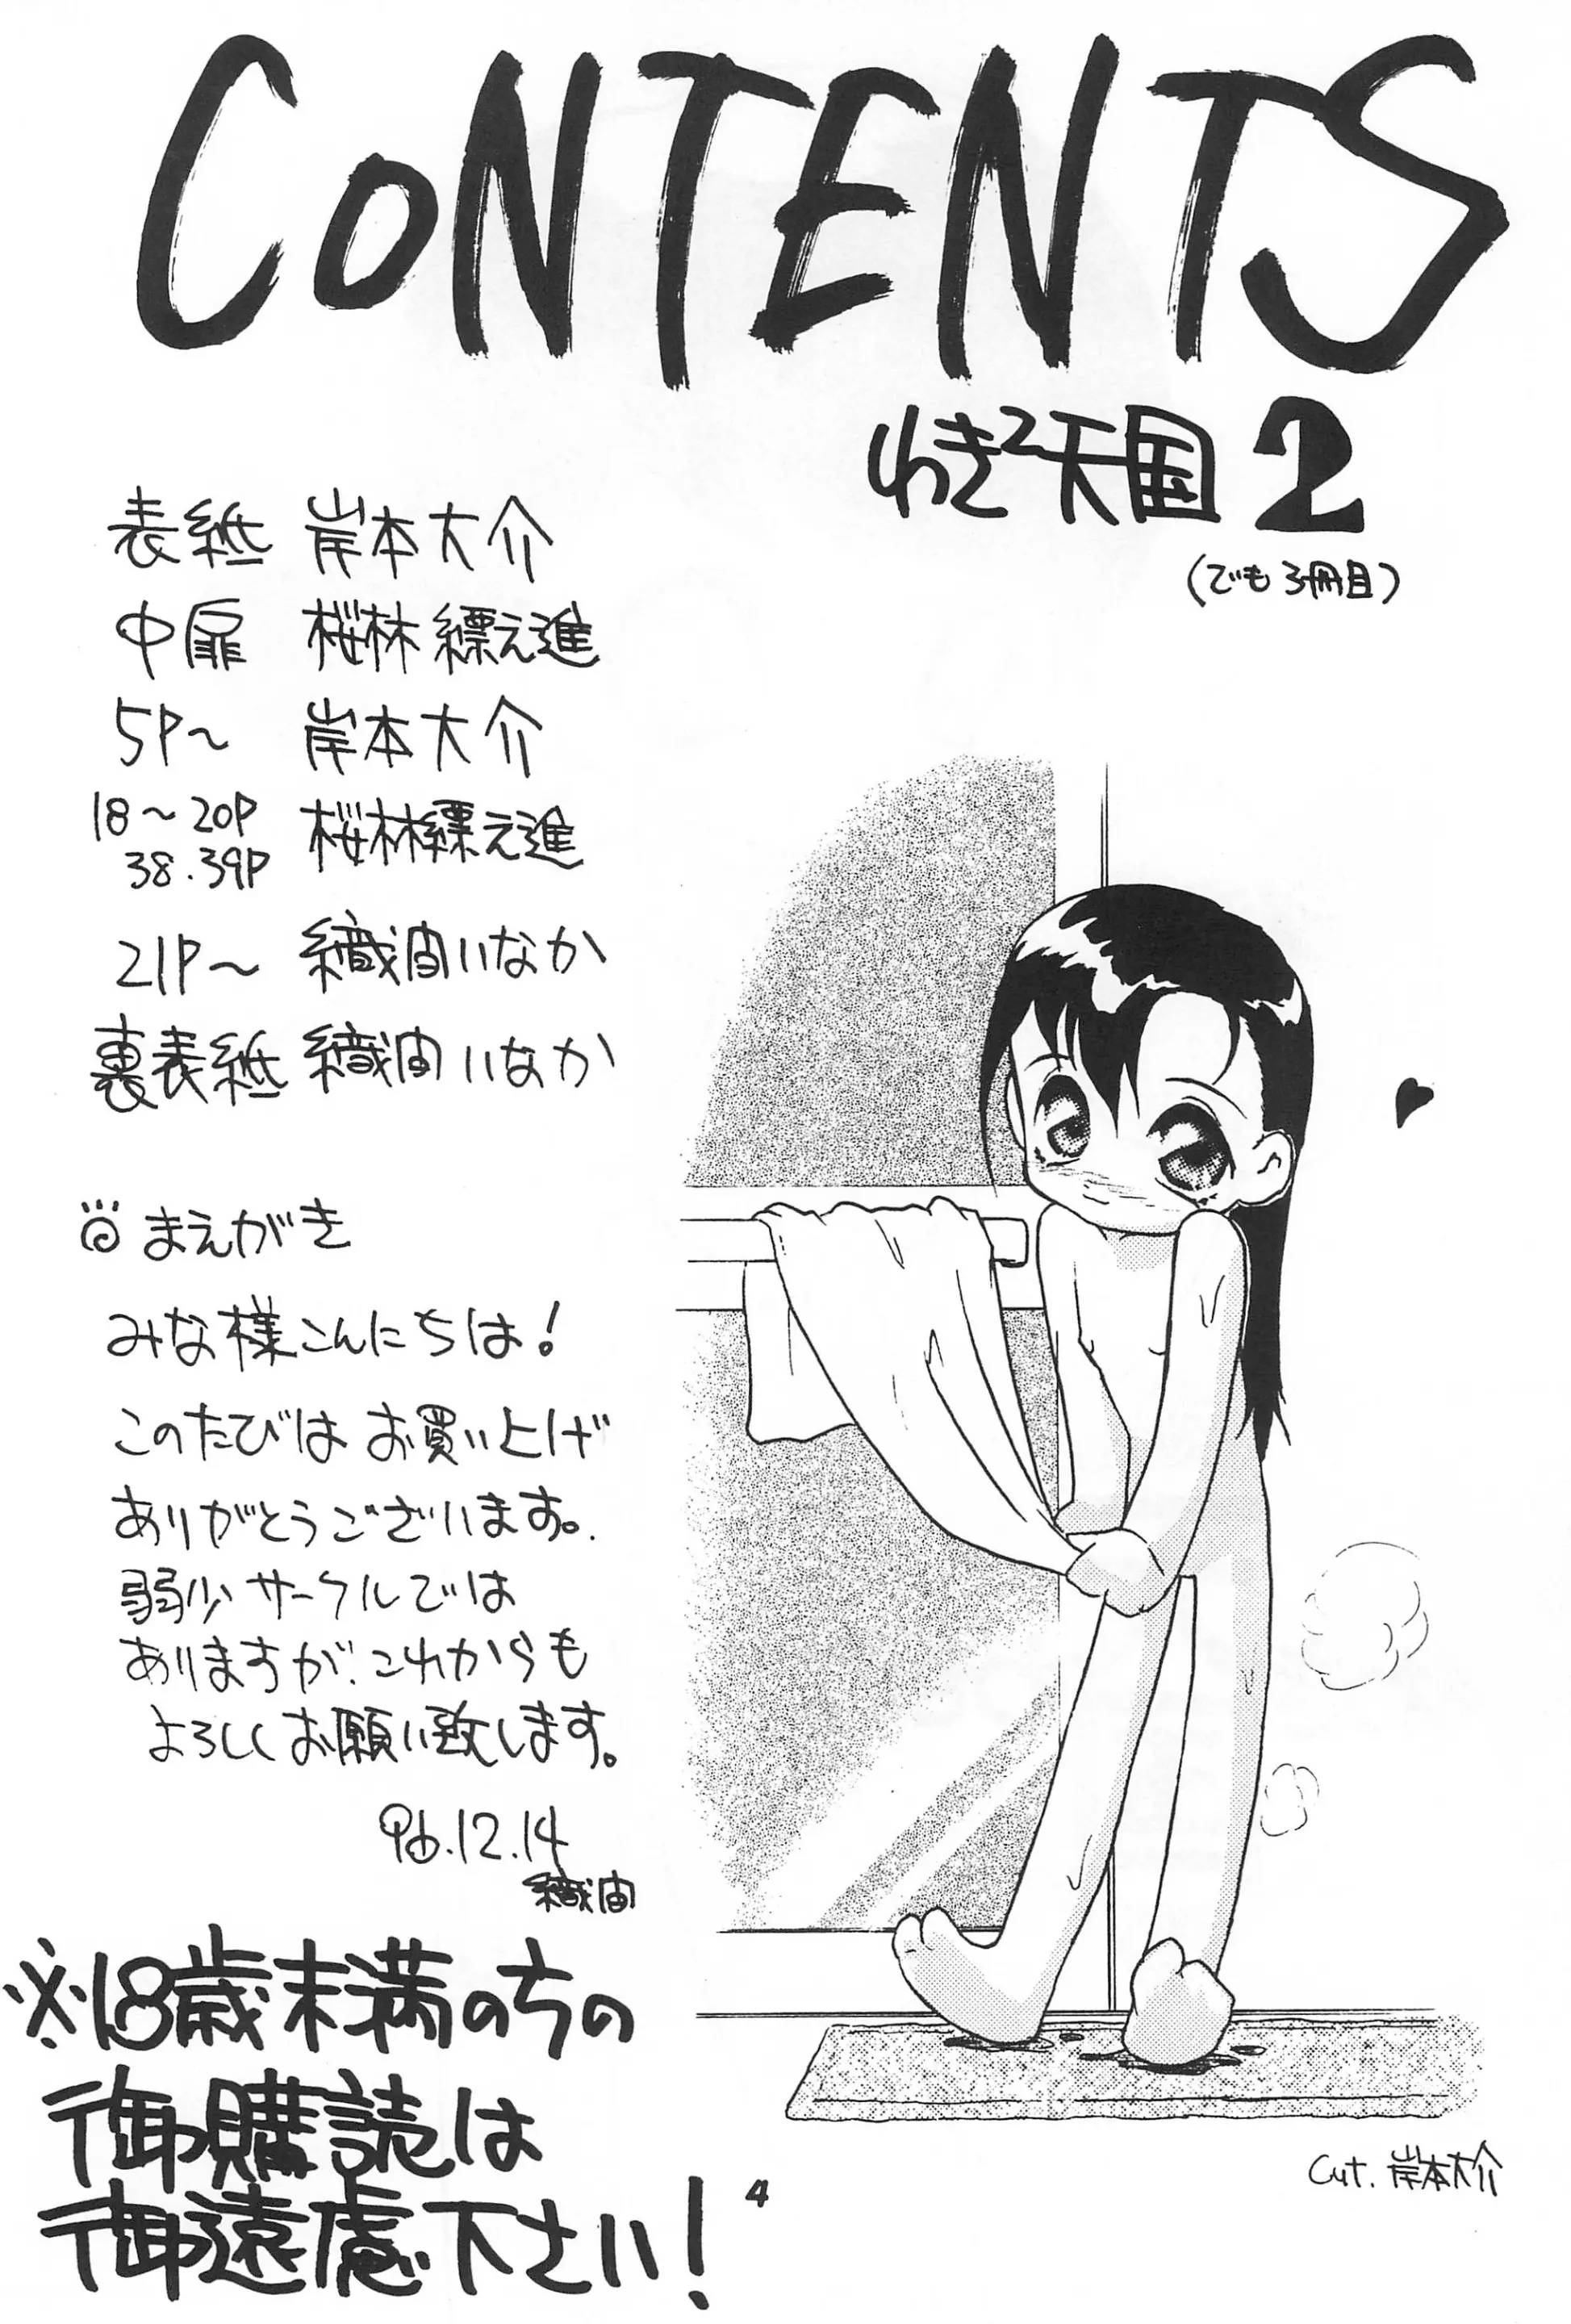 CONTENTS
わき²天国 2
(でも3冊目)
表紙 岸本大介
中扉 桜林縹え進
5P〜 岸本大介
18〜20P
38.39P 桜林縹え進
21P〜 織宙いなか
裏表紙 織宙いなか
まえがき
みな様こんにちは!
このたびは お買い上げ
ありがとうございます。
弱少サークルでは
ありますが、これからも
よろしくお願い致します。
96.12.14
織宙
※18歳未満の方の
御購読は
御遠慮下さい!
4
Cut. 岸本大介